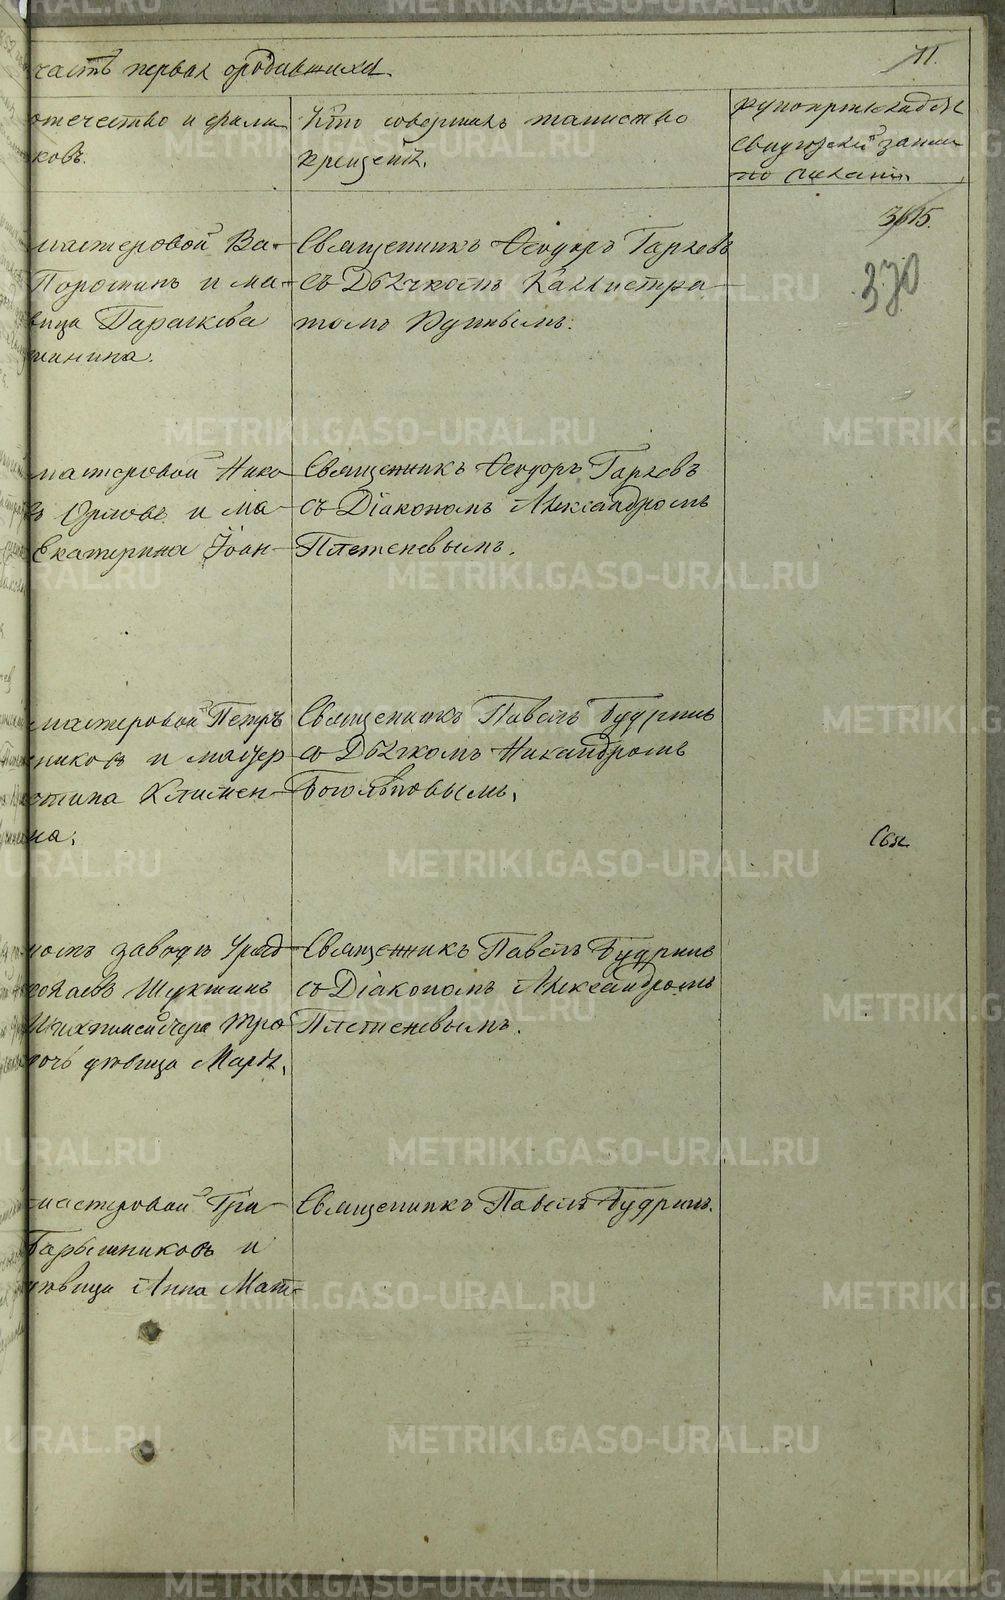 11.
часть первая о родившихся.
отчество и фами-
ковъ.
Кто совершалъ таинство
крещенія.
Рукоприкладство
свидѣтелей записи
по желанію.
3615.
370
мастеровой Ва-
Порошинъ и ма-
вица Параскева
шинина.
Священникъ Ѳеодоръ Гаряевъ
съ Дьячкомъ Каллистра-
томъ
мастеровой Нико-
въ Орловъ и ма-
Екатерина Іоан-
Священникъ Ѳеодоръ Гаряевъ
съ Діакономъ Александромъ
Плетеневымъ.
мастеровой Петръ
никовъ и мавер
стина Климен-
на.
Священникъ Павелъ Будринъ
со Дьячкомъ Никандромъ
Боголѣповымъ.
Свя
номъ заводѣ Уряд-
Шуктинъ
Шихтмейстера Тро-
дочь дѣвица Марѳа.
Священникъ Павелъ Будринъ
со Діакономъ Александромъ
Плетеневымъ.
мастеровой Гри-
Барышниковъ и
дѣвица Анна Мат-
Священникъ Павелъ Будринъ.
METRIKI.GASO-URAL.RU